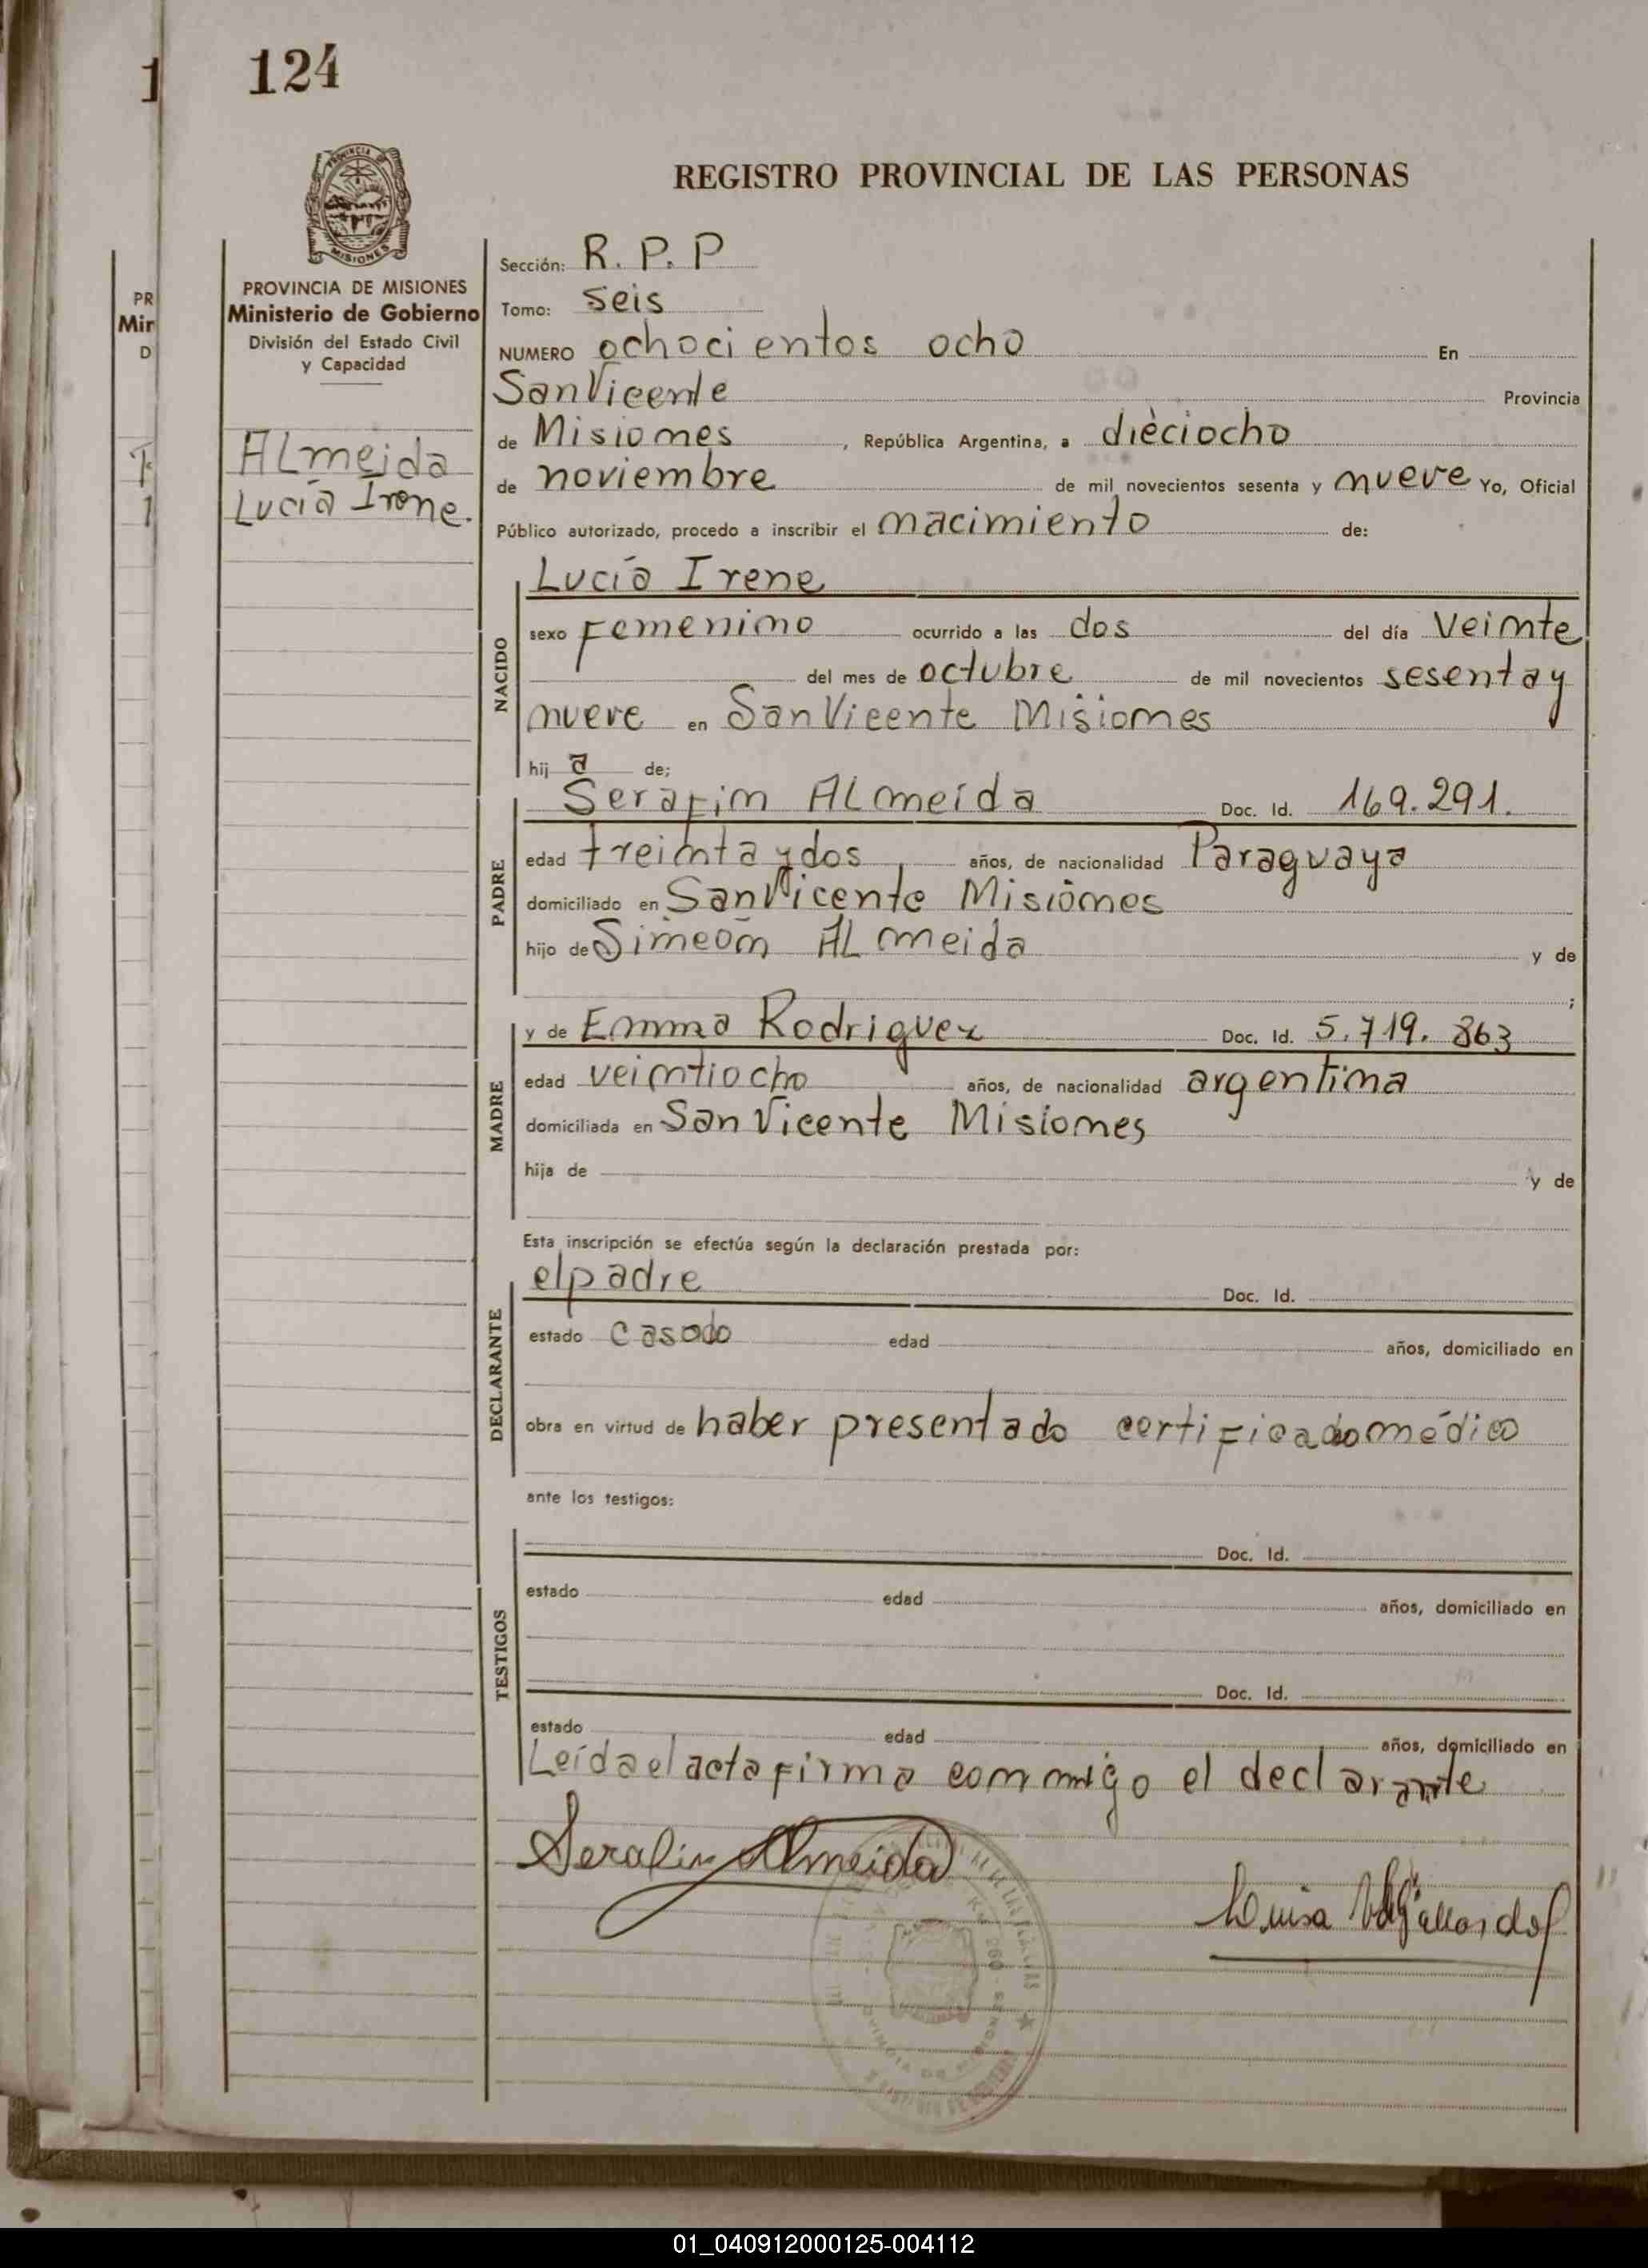 124
1
PROVINCIA DE
MISIONES
REGISTRO PROVINCIAL DE LAS PERSONAS
PROVINCIA DE MISIONES
Ministerio de Gobierno
División del Estado Civil
y Capacidad
PR
Mir
D
ALmeida
Lucía Irene.
Sección: R. P. P
Tomo: seis
NUMERO ochocientos ocho En
San Vicente Provincia
de Misiones , República Argentina, a dieciocho
de noviembre de mil novecientos sesenta y nueve Yo, Oficial
Público autorizado, procedo a inscribir el nacimiento de:
NACIDO
Lucía Irene
sexo Femenino ocurrido a las dos del día veinte
del mes de octubre de mil novecientos sesenta y
nueve en San Vicente Misiones
hij a de;
PADRE
Serafin ALmeida Doc. Id. 169.291.
edad treinta y dos años, de nacionalidad Paraguaya
domiciliado en San Vicente Misiones
hijo de Simeón ALmeida y de
;
MADRE
y de Emma Rodriguez Doc. Id. 5.719.863
edad veintiocho años, de nacionalidad argentina
domiciliada en San Vicente Misiones
hija de y de
Esta inscripción se efectúa según la declaración prestada por:
DECLARANTE
el padre Doc. Id.
estado casado edad años, domiciliado en
obra en virtud de haber presentado certificado médico
ante los testigos:
TESTIGOS
Doc. Id.
estado edad años, domiciliado en
Doc. Id.
estado edad años, domiciliado en
Leída el acta firma conmigo el declarante
Serafin Almeida
Luisa
01_040912000125-004112